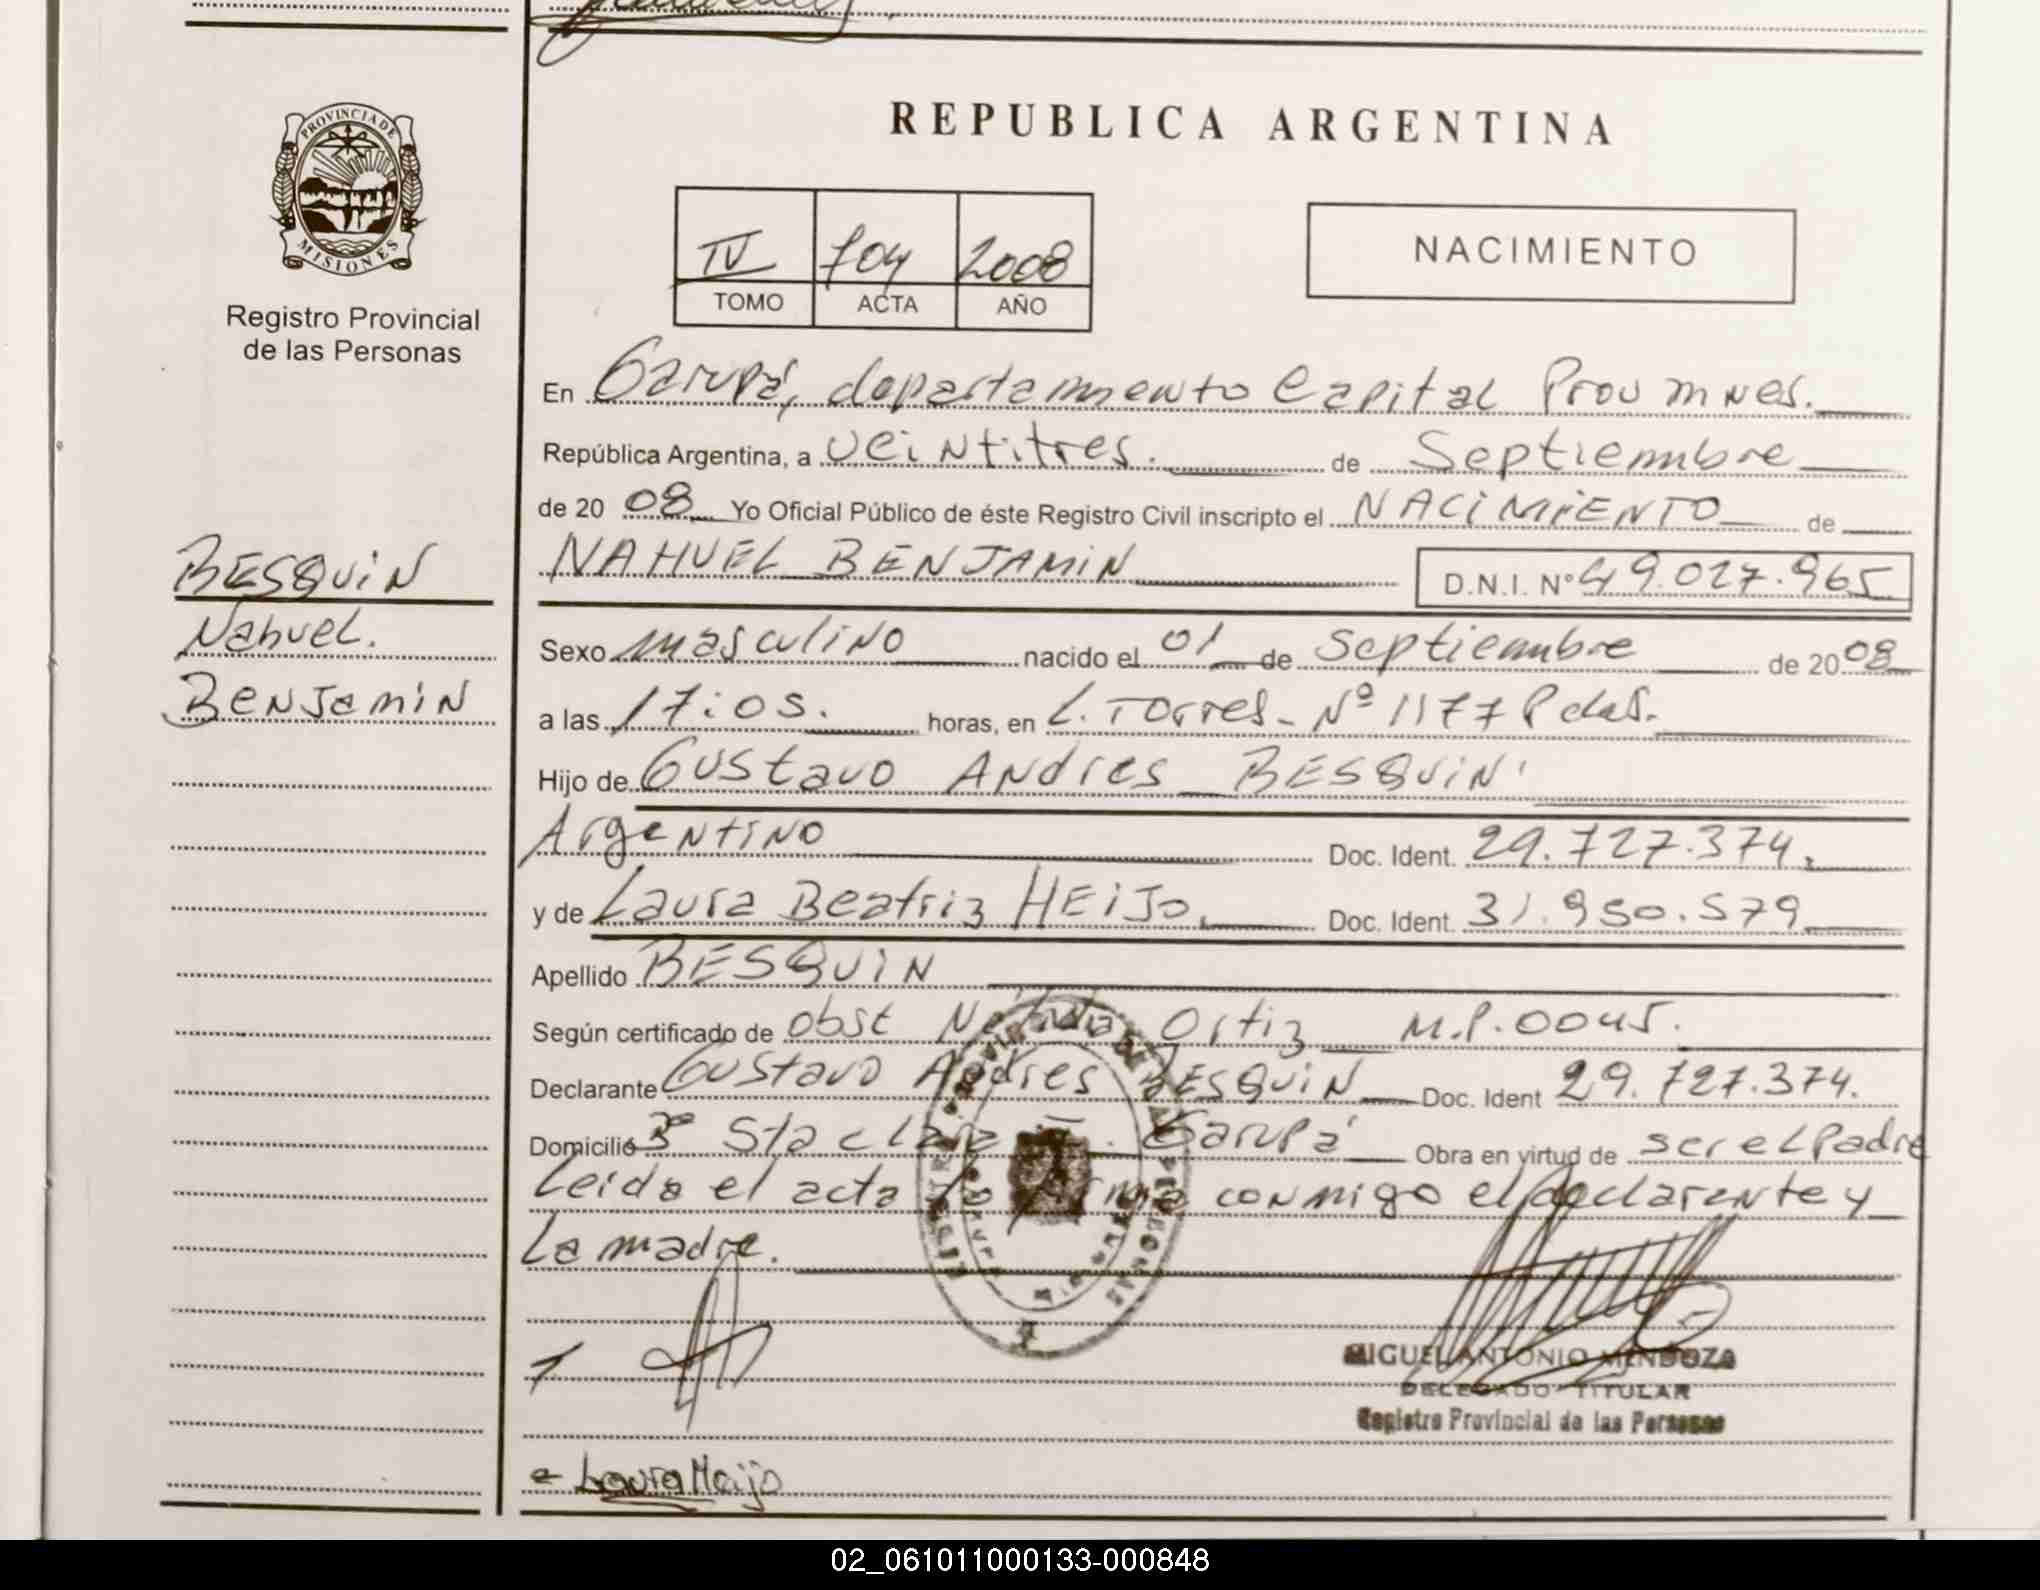 REPUBLICA ARGENTINA
PROVINCIA DE
MISIONES
Registro Provincial
de las Personas
IV 704 2008
TOMO ACTA AÑO
NACIMIENTO
En Garupá, departamento Capital Prov mnes.
República Argentina, a veintitres. de Septiembre
de 20 08 Yo Oficial Público de éste Registro Civil inscripto el NACIMIENTO de
NAHUEL BENJAMIN D.N.I. Nº 49.027.965
BESQUIN
Nahuel.
Benjamin
Sexo masculino nacido el 01 de Septiembre de 20 08
a las 17:05. horas, en L. Torres - Nº 1177 Pdas.
Hijo de Gustavo Andres BESQUIN
Argentino Doc. Ident. 29.727.374.
y de Laura Beatriz HEIJO, Doc. Ident. 31.950.579
Apellido BESQUIN
Según certificado de obst Ortiz M.P.0045.
Declarante Gustavo Andres BESQUIN Doc. Ident 29.727.374.
Domicilio Bº Sta clara Garupá Obra en virtud de ser el Padre
Leida el acta la firma conmigo el declarante y
La madre.
1.
MIGUEL ANTONIO MENDOZA
DELEGADO TITULAR
Registro Provincial de las Personas
Laura Heijo
02_061011000133-000848